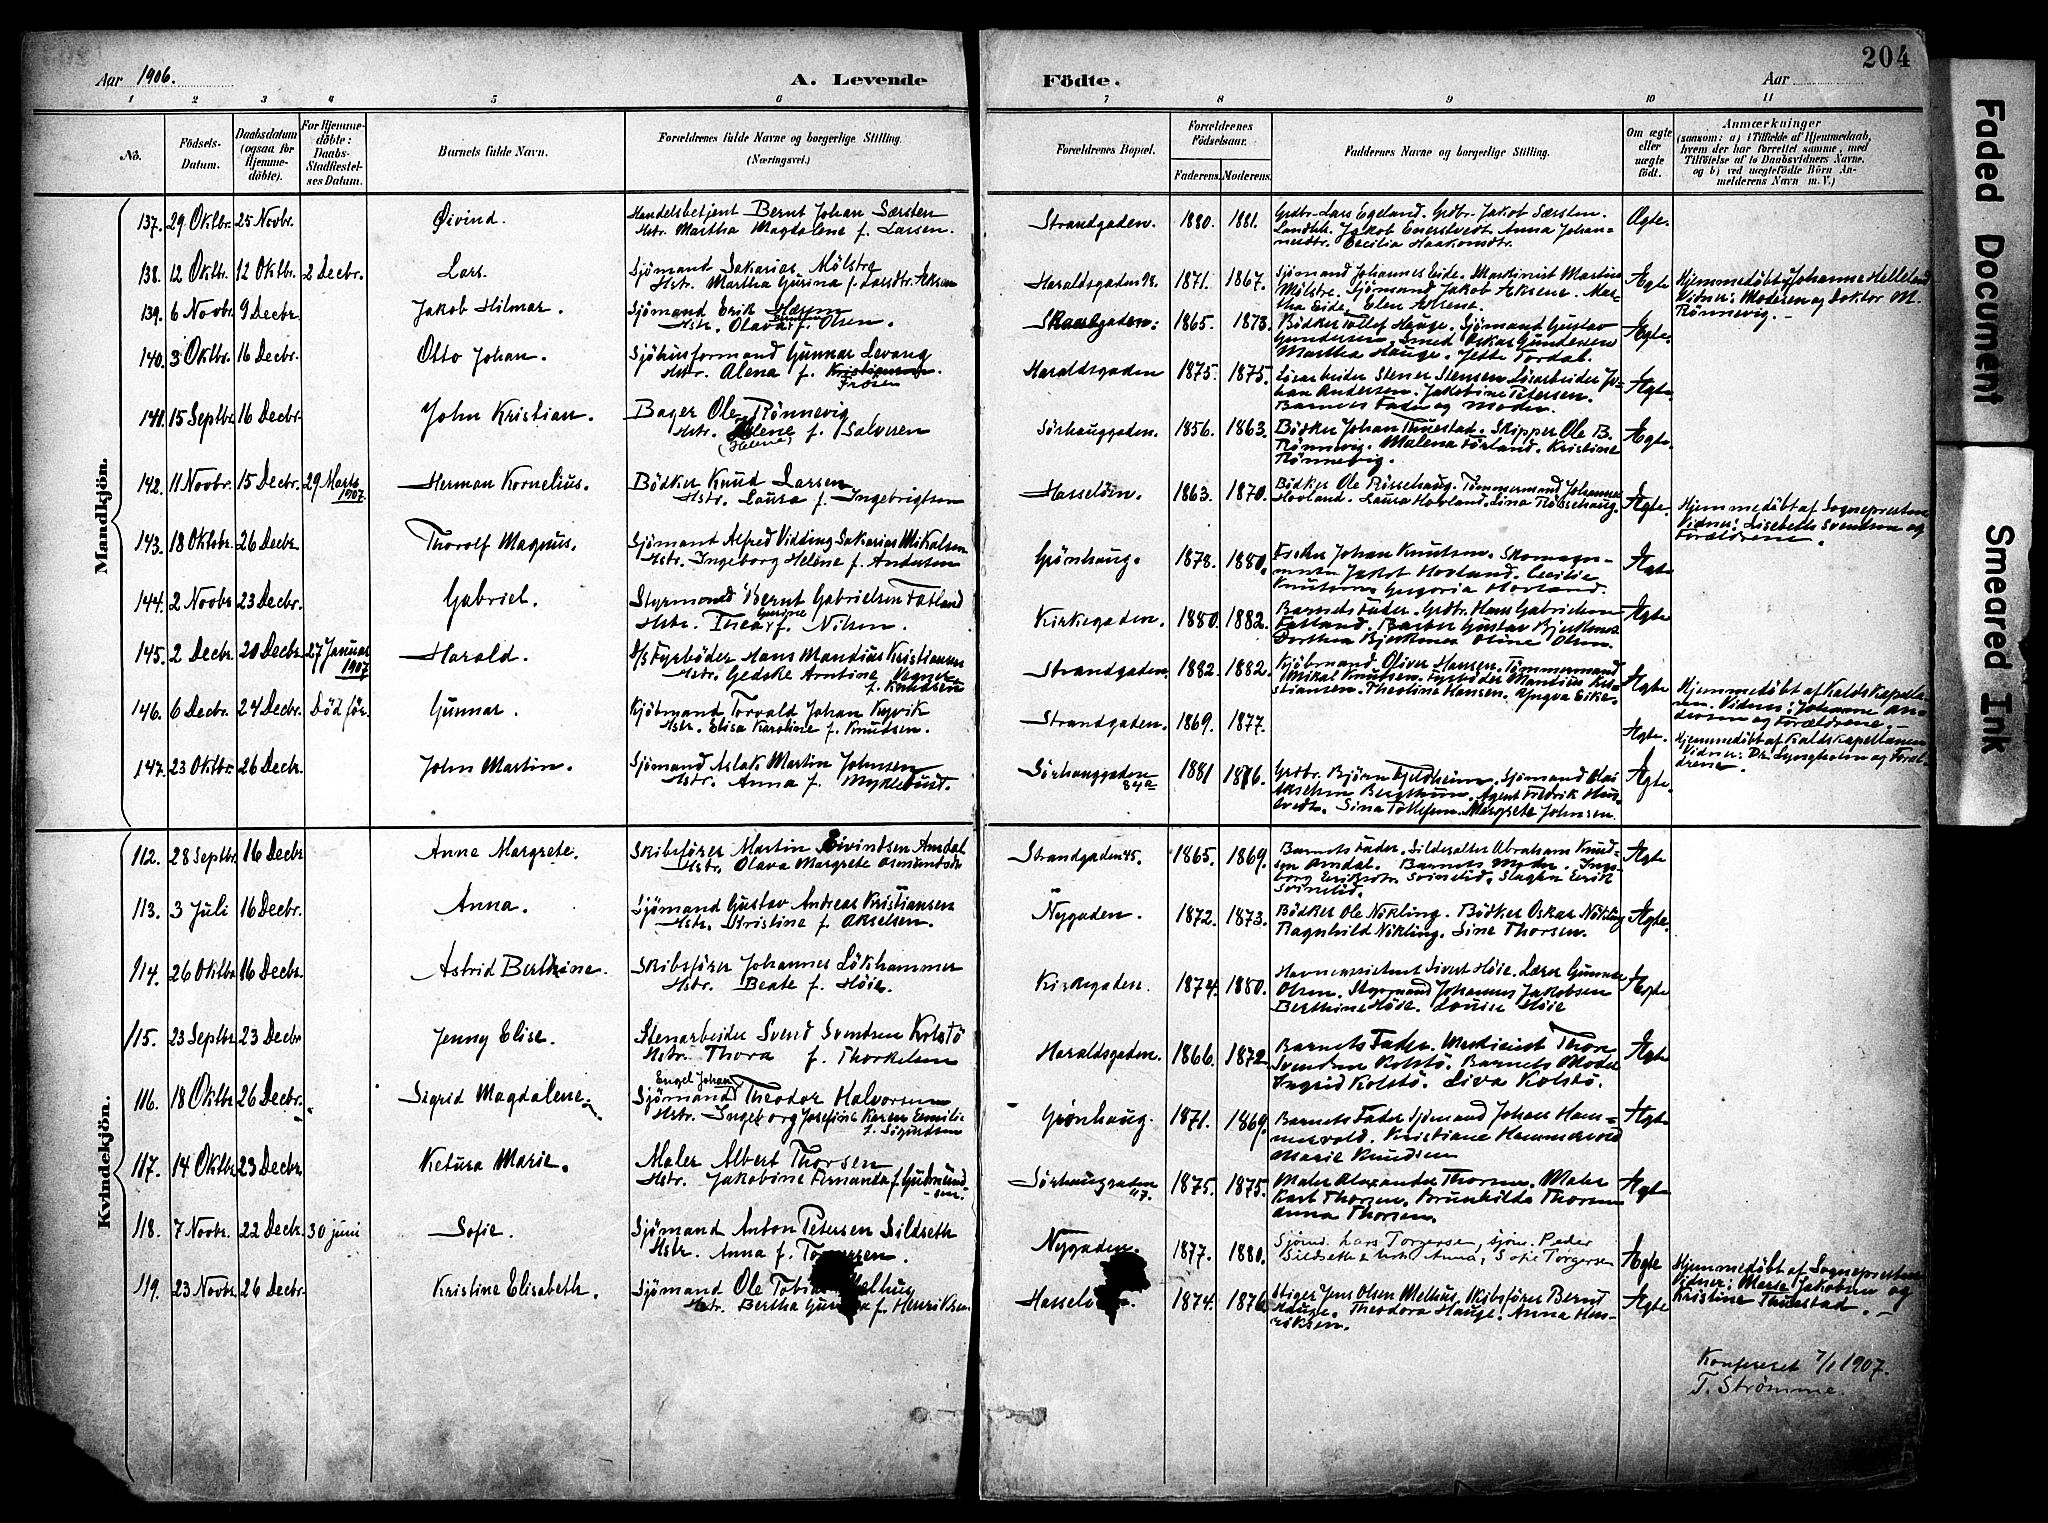 204
Aar 1906.
A. Levende
Födte.
Aar
1 2 3 4 5 6 7 8 9 10 11
No.
Födsels-Datum.
Daabsdatum (ogsaa for Hjemme-döbte).
For Hjemme-döbte: Daabs-Stadfæstel-ses Datum.
Barnets fulde Navn.
Forældrenes fulde Navne og borgerlige Stilling. (Næringsvei.)
Forældrenes Bopæl.
Forældrenes Födselsaar.
Faderens. Moderens.
Faddernes Navne og borgerlige Stilling.
Om ægte eller uægte födt.
Anmærkninger
(saasom: a) i Tilfælde af Hjemmedaab, hvem der har forrettet samme, med Tilföielse af to Daabsvidners Navne, og b) ved uægtefödte Börn An-melderens Navn m. V.)
Mandkjön.
137. 29 Oktbr. 25 Novbr. Øivind. Handelsbetjent Bernt Johan Særsten
Hstr. Martha Magdalene f. Larsen. Strandgaden. 1880. 1881. Grdbr. Lars Egeland. Grdbr. Jakob Særsten.
Anna Johan-
nesdtr. Cecilia Haakonsdtr. Ægte.
138. 12 Oktbr. 12 Oktbr. 2 Decbr. Lars. Sjömand Sakarias Mölstre
Hstr. Martha Gurina f. Larsdtr. Aksen Haraldsgaden 98. 1871. 1867. Sjömand Johannes Eide. Maskinist Martin
Mölstre. Sjömand Jakob Aksene. Mar-
tha Eide. Elen Aksene. Ægte Hjemmedöbt af Johanne Helleland
Vidner: Moderen og Doktor M.
Rönnevig. —
139. 6 Novbr. 9 Decbr. Jakob Hilmar. Sjömand Erik
Hstr. Olava f. Olsen. 1865. 1873. Bödker Tollef Hauge. Sjömand Gustav
Gundersen. Smed Oskar Gundersen
Martha Hauge. Jette Tordal. Ægte.
140. 3 Oktbr. 16 Decbr. Otto Johan. Sjöhusformand Gunnar Levang
Hstr. Alena f. Kristiansen.
Frösen Haraldsgaden 1875. 1875. Lösarbeider Stener Stensen Lösarbeider Jo-
han Andersen. Jakobine Petersen.
Barnets Fader og Moder. Ægte.
141. 15 Septbr. 16 Decbr. John Kristian. Bager Ole Rönnevig
Hstr. Helene f. Salvesen
(Helene) Sörhauggaden. 1856. 1863. Bödker Johan Thuestad. Skipper Ole B.
Rönnevig. Malena Förland. Kristine
Rönnevig. Ægte.
142. 11 Novbr. 15 Decbr. 29 Marts
1907. Herman Kornelius. Bödker Knud Larsen
Hstr. Laura f. Ingebrigtsen Hasselöen. 1863. 1870. Bödker Ole Rössehaug. Tömmermand Johannes
Hovland. Laura Hovland. Lina Rössehaug. Ægte. Hjemmedöbt af Sognepresten
Vidner: Lisebeth Svendsen og
Forældrene.
143. 18 Oktbr. 26 Decbr. Thorolf Magnus. Sjömand Alfred Vidding Sakarias Mikalsen
Hstr. Ingeborg Helene f. Andersen Grönhaug. 1878. 1880. Fisker Johan Knutsen. Skomager-
Jakob Hovland. Cecilie
Knutsen. Gregoria Hovland. Ægte
144. 2 Novbr. 23 Decbr. Gabriel. Styrmand Bernt Gabrielsen Fatland
Gurine
Hstr. Thea f. Nilsen. Kirkegaden. 1880. 1882. Barnets Fader. Grdbr. Hans Gabrielsen
Fatland. Barber Gustav Bjerknes.
Dorthea Bjerknes Oline Olsen. Ægte
145. 2 Decbr. 20 Decbr. 27 Januar
1907 Harald. D/S Fyrböder Hans Mandius Kristiansen
Hstr. Gedske Arntine Vegner
f. Knudsen Strandgaden 1882. 1882. Kjöbmand Oliver Hansen. Tömmermand
Mikal Knutsen. Fyrböder Mandius Kri-
stiansen. Theoline Hansen. Yngva Eike. Ægte Hjemmedöbt af Kaldskapella-
nen. Vidner: Johanne An-
dersen og Forældrene. —
146. 6 Decbr. 24 Decbr. Död för. Gunnar. Kjöbmand Torvald Johan Kyvik
Hstr. Elisa Karoline f. Knudsen. Strandgaden. 1869. 1877. Ægte. Hjemmedöbt af Kaldskapellanen
Vidner: Dr. Lyngholm og Foræl-
drene.
147. 23 Oktbr. 26 Decbr. John Martin. Sjömand Aslak Martin Johnsen
Hstr. Anna f. Myklebust. Sörhauggaden
84a 1881 1876. Grdbr. Björn Fjeldheim. Sjömand Olai
Akselsen Bergthun. Agent Fredrik Hus-
tvedt. Sina Tollefsen. Margrete Johnsen. Ægte.
Kvindekjön.
112. 28 Septbr. 16 Decbr Anne Margrete. Skibsförer Martin Eivindsen Amdal
Hstr. Olava Margrete Asmundsdtr Strandgaden 45. 1865. 1869. Barnets Fader. Sildesalter Abraham Knud-
sen Amdal. Barnets Moder. Inge-
borg Eriksdtr. Svinelid. Slagter Eerik
Svinelid. Ægte
113. 3 Juli 16 Decbr. Anna. Sjömand Gustav Andreas Kristiansen
Hstr. Kristine f. Akselsen. Nygaden. 1872. 1873. Bödker Ole Nökling. Bödker Oskar Nökling
Ragnhild Nökling. Sine Thorsen. Ægte.
114. 26 Oktbr 16 Decbr. Astrid Berthine. Skibsförer Johannes Lökhammer
Hstr. Beate f. Höie. Kirkegaden. 1874. 1880. Havneassistent Sivert Höie. Lærer Gunnar
Olsen. Styrmand Johannes Jakobsen
Berthine Höie. Louise Höie Ægte
115. 23 Septbr. 23 Decbr. Jenny Elise. Stenarbeider Svend Svendsen Kolstö
Hstr. Thora f. Thorkelsen Haraldsgaden. 1866. 1872. Barnets Fader. Maskinist Thor
Svendsen Kolstö. Barnets Moder
Ingrid Kolstö. Liva Kolstö. Ægte
116. 18 Oktbr 26 Decbr. Sigrid Magdalene. Engel Johan
Sjömand Theodor Halvorsen
Hstr. Ingeborg Josefine Karen Emilie
f. Sigurdsen Grönhaug. 1871. 1869. Barnets Fader Sjömand Johan Ham-
mervold. Kristiane Hammervold
Marie Knudsen Ægte
117. 14 Oktbr 23 Decbr. Ketura Marie. Maler Albert Thorsen
Hstr. Jakobine Fernanda f. Gudmund-
sen. Sörhauggaden
47. 1875. 1875. Maler Alexander Thorsen. Maler
Karl Thorsen. Brunhilde Thorsen
Anna Thorsen. Ægte
118. 7 Novbr. 22 Decbr. 30 juni Sofie. Sjömand Anton Petersen Sildseth
Hstr. Anna f. Torgersen. Nygaden. 1877. 1880. Sjömd. Lars Torgersen, sjöm. Peder
Sildseth & Anna, Sofie Torgersen Ægte Hjemmedöbt af Sognepresten
Vidner: Marta Jakobsen og
Kristine Thuestad. —
119. 23 Novbr. 26 Decbr. Kristine Elisabeth. Sjömand Ole Tobias Melhus
Hstr. Bertha Gurine f. Henriksen Hasselöen. 1874. 1876. Stiger Jens Olsen Melhus, Skibsförer Bernt
Hauge. Theodora Hauge. Anna Hen-
riksen. Ægte
Konfereret 7/1 1907.
T. Strömme.
Faded Document
Smeared Ink